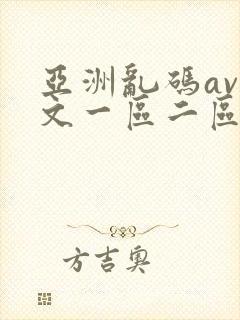 亞洲亂碼av
文一區二區
方吉奧